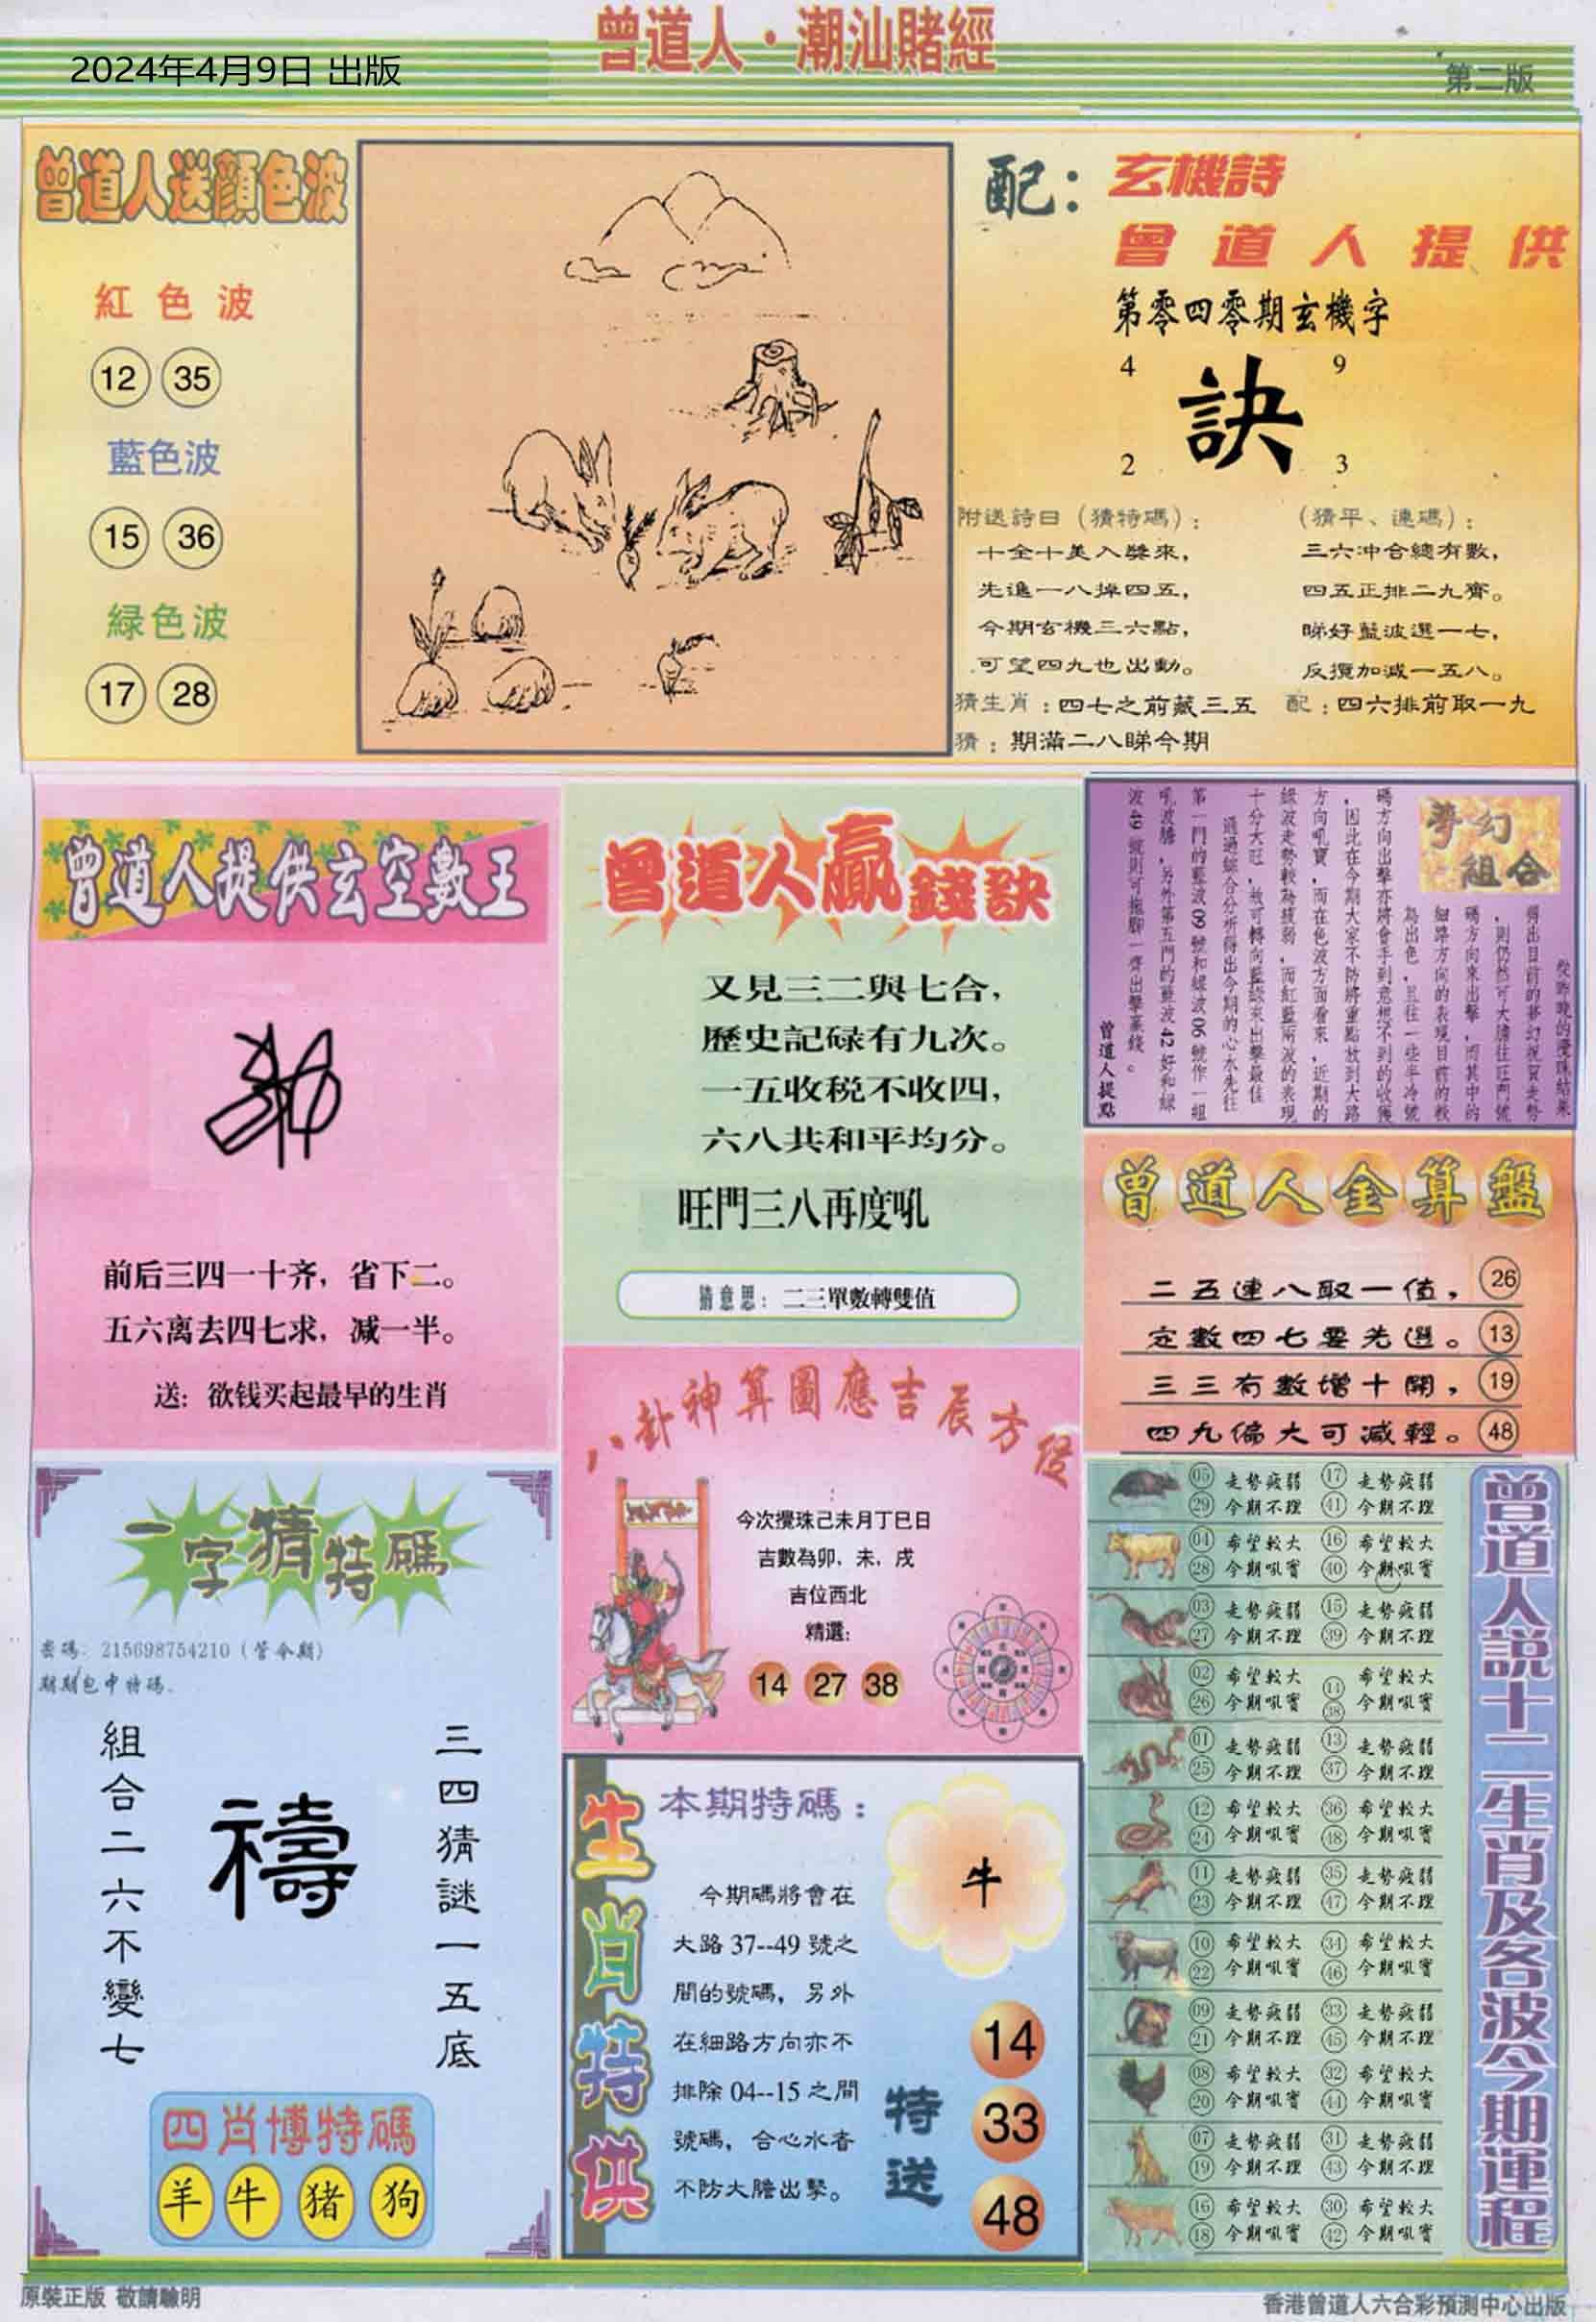 曾道人·潮汕賭經
2024年4月9日 出版
第二版
曾道人送顏色波
紅色波
12 35
藍色波
15 36
緑色波
17 28
配：玄機詩
曾道人提供
第零四零期玄機字
4 9
訣
2 3
附送詩曰（猜特碼）：
十全十美入獎來，
先進一八掉四五，
今期玄機三六點，
可望四九也出動。
（猜平、連碼）：
三六冲合總有數，
四五正排二九齊。
睇好藍波選一七，
反攬加减一五八。
猜生肖：四七之前藏三五
配：四六排前取一九
猜：期滿二八睇今期
曾道人提供玄空數王
前后三四一十齐，省下二。
五六离去四七求，减一半。
送：欲钱买起最早的生肖
曾道人贏錢訣
又見三二與七合，
歷史記碌有九次。
一五收税不收四，
六八共和平均分。
旺門三八再度吼
猜意思：二三單數轉雙值
夢幻組合
從昨晚的攪珠結果
得出目前的夢幻祝賀走勢
，則仍然可大膽往旺門號
碼方向來出擊，而其中的
細路方向的表現目前的較
為出色，且往一些半冷號
碼方向出擊亦將會手到意想不到的收獲
，因此在今期大家不防將重點放到大路
方向吼實，而在色波方面看來，近期的
緑波走勢較為疲弱，而紅藍兩波的表現
十分大旺，故可轉向藍緑來出擊最佳
通過綜合分析得出今期的心水先往
第一門的藍波09號和緑波06號作一組
吼波膽，另外第五門的藍波42好和緑
波49號則可拖腳一齊出擊贏錢。
曾道人提點
曾道人金算盤
二五連八取一值，26
定數四七要先選。13
三三有數增十開，19
四九偏大可减輕。48
八卦神算圖應吉辰方位
今次攪珠己未月丁巳日
吉數為卯，未，戌
吉位西北
精選：
14 27 38
一字猜特碼
密碼：215698754210（管令期）
期期包中特碼.
三四猜謎一五底
禱
組合二六不變七
四肖博特碼
羊 牛 猪 狗
生肖特供
本期特碼：
牛
今期碼將會在
大路37--49號之
間的號碼，另外
在細路方向亦不
排除04--15之間
號碼，合心水者
不防大膽出擊。
特送
14
33
48
曾道人説十二生肖及各波今期運程
05 走勢疲弱 17 走勢疲弱
29 今期不理 41 今期不理
04 希望較大 16 希望較大
28 今期吼實 40 今期吼實
03 走勢疲弱 15 走勢疲弱
27 今期不理 39 今期不理
02 希望較大 14 希望較大
26 今期吼實 38 今期吼實
01 走勢疲弱 13 走勢疲弱
25 今期不理 37 今期不理
12 希望較大 36 希望較大
24 今期吼實 48 今期吼實
11 走勢疲弱 35 走勢疲弱
23 今期不理 47 今期不理
10 希望較大 34 希望較大
22 今期吼實 46 今期吼實
09 走勢疲弱 33 走勢疲弱
21 今期不理 45 今期不理
08 希望較大 32 希望較大
20 今期吼實 44 今期吼實
07 走勢疲弱 31 走勢疲弱
19 今期不理 43 今期不理
16 希望較大 30 希望較大
18 今期吼實 42 今期吼實
原裝正版 敬請驗明
香港曾道人六合彩預測中心出版